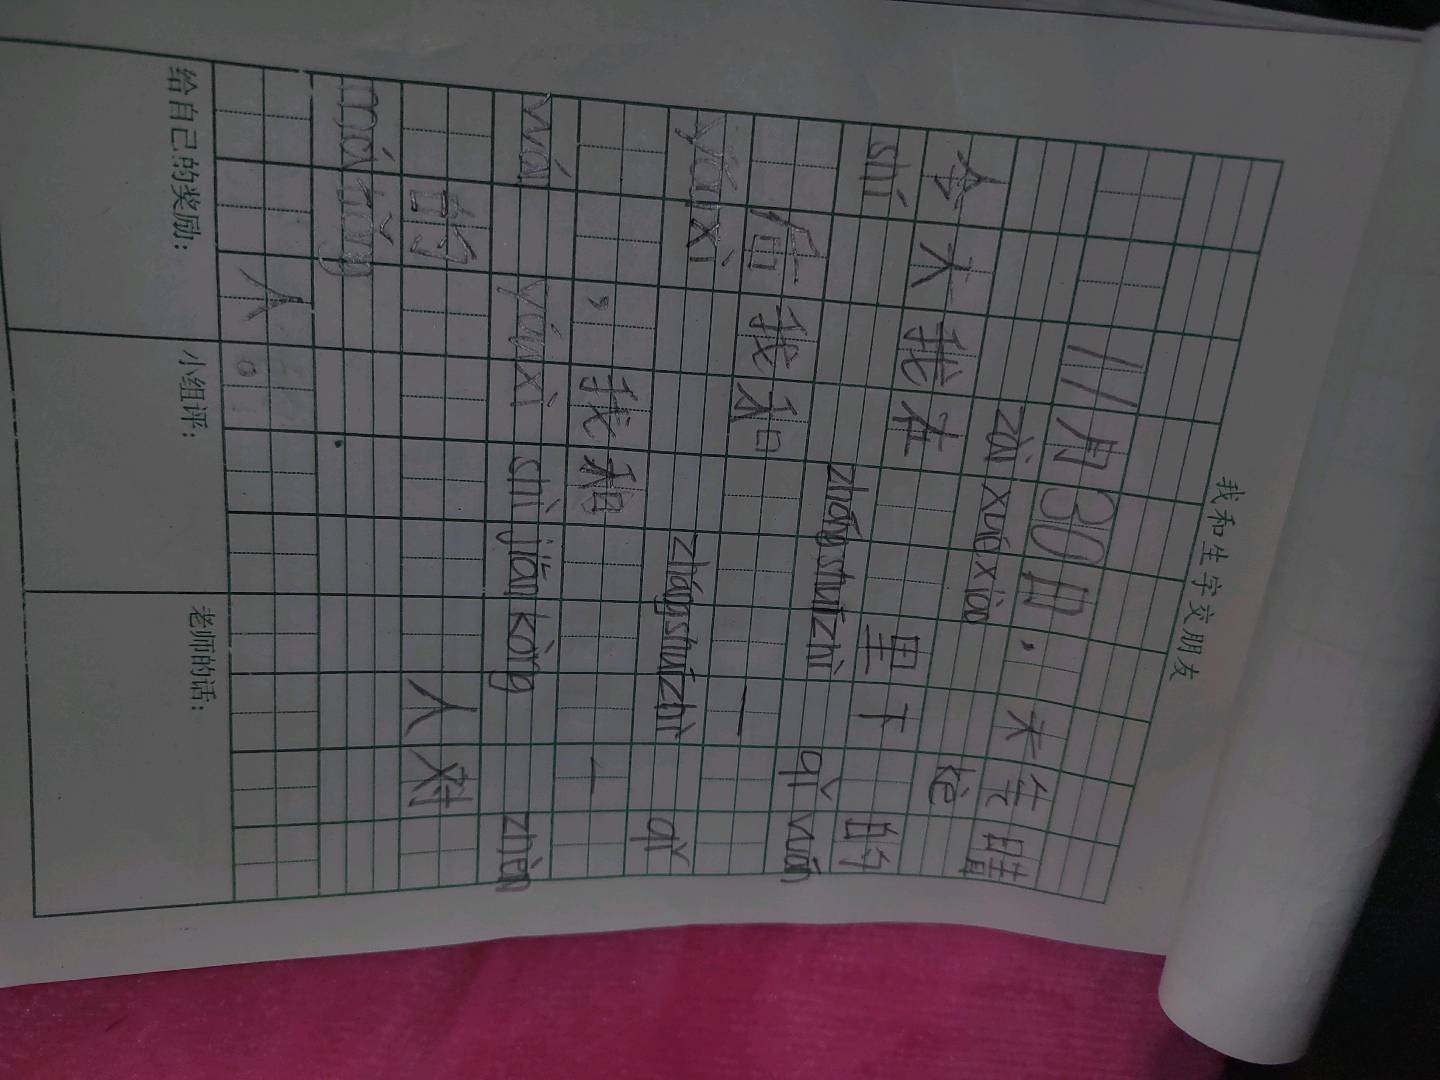 我和生字交朋友
11月30日,天气晴
zài xué xiào kè
今天我在 里下 的
shí zhāng shuǐ zhì qǐ wán
后我和 一
yóu xì zhāng shuǐ zhì qǐ
。我和 一
wán yóu xì shì jiān kòng zhèn
的 人对
人。
给自己的奖励: 小组评: 老师的话: